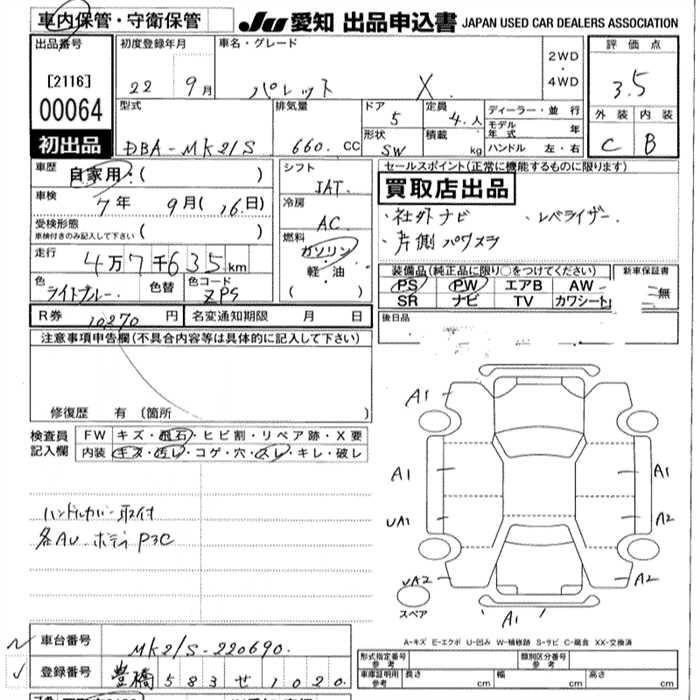 車内保管・守衛保管
JU 愛知 出品申込書 JAPAN USED CAR DEALERS ASSOCIATION
出品番号 [2116] 00064 初出品
初度登録年月 22 9月
車名・グレード パレット X.
2WD・4WD
評価点 3.5
型式 DBA-MK21S
排気量 660. CC
ドア 5
定員 4.人
形状 SW
積載 kg
ディーラー・並行
モデル年式 年
ハンドル 左・右
外装 C 内装 B
車歴 自家用・( )
車検 7年 9月(16日)
受検形態 車検付きのみ記入して下さい ( )
走行 4万7千635km
色 ライトブルー. 色替 色コード ZPS
シフト IAT.
冷房 AC
燃料 ガソリン・軽・油 ( )
セールスポイント(正常に機能するものに限ります)
買取店出品
・社外ナビ ・レベライザー.
・片側パワスラ
装備品(純正品に限り○をつけてください)
PS PW エアB AW
SR ナビ TV カワシート
新車保証書 無
R券 10270 円 名変通知期限 月 日
後日品
注意事項申告欄(不具合内容等は具体的に記入して下さい)
修復歴 有 (箇所 )
検査員記入欄
FW キズ・飛石・ヒビ割・リペア跡・X要
内装 キズ・汚レ・コゲ・穴・スレ・キレ・破レ
ハンドルカバー取付
各AU ボディ P3C
A1
A1 A1
UA1 A2
UA2 A2
A1
スペア
A-キズ E-エクボ U-凹み W-補修跡 S-サビ C-腐食 XX-交換済
車台番号 MK21S-220690.
登録番号 豊橋 583 せ 1020
形式指定番号 参考 類別区分番号 参考
車庫証明用 参考 長さ cm 幅 cm 高さ cm